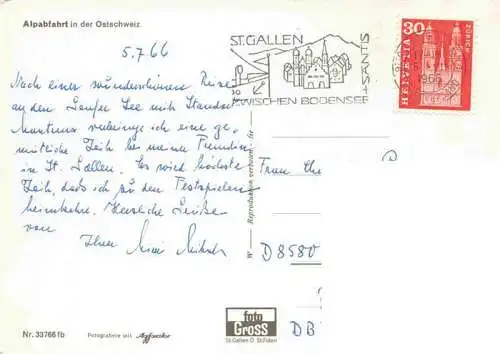 Alpabfahrt in der Ostschweiz
5.7.66
Nach einer wunderschönen Reise
an den Genfer See mit Standort
verbringe ich eine ge-
mütliche Zeit bei meiner Freundin
in St. Gallen. Es wird höchste
Zeit, dass ich zu den Festspielen
heimkehre. Herzliche Grüße
von
Ihrer
ST. GALLEN
ZWISCHEN BODENSEE
+ SÄNTIS
30
HELVETIA
ZÜRICH
Frau
D 8580
D B
W
Reproduktion verboten
foto
Gross
St.Gallen O St.Fiden
Nr. 33766 fb
Fotografiere mit Agfacolor